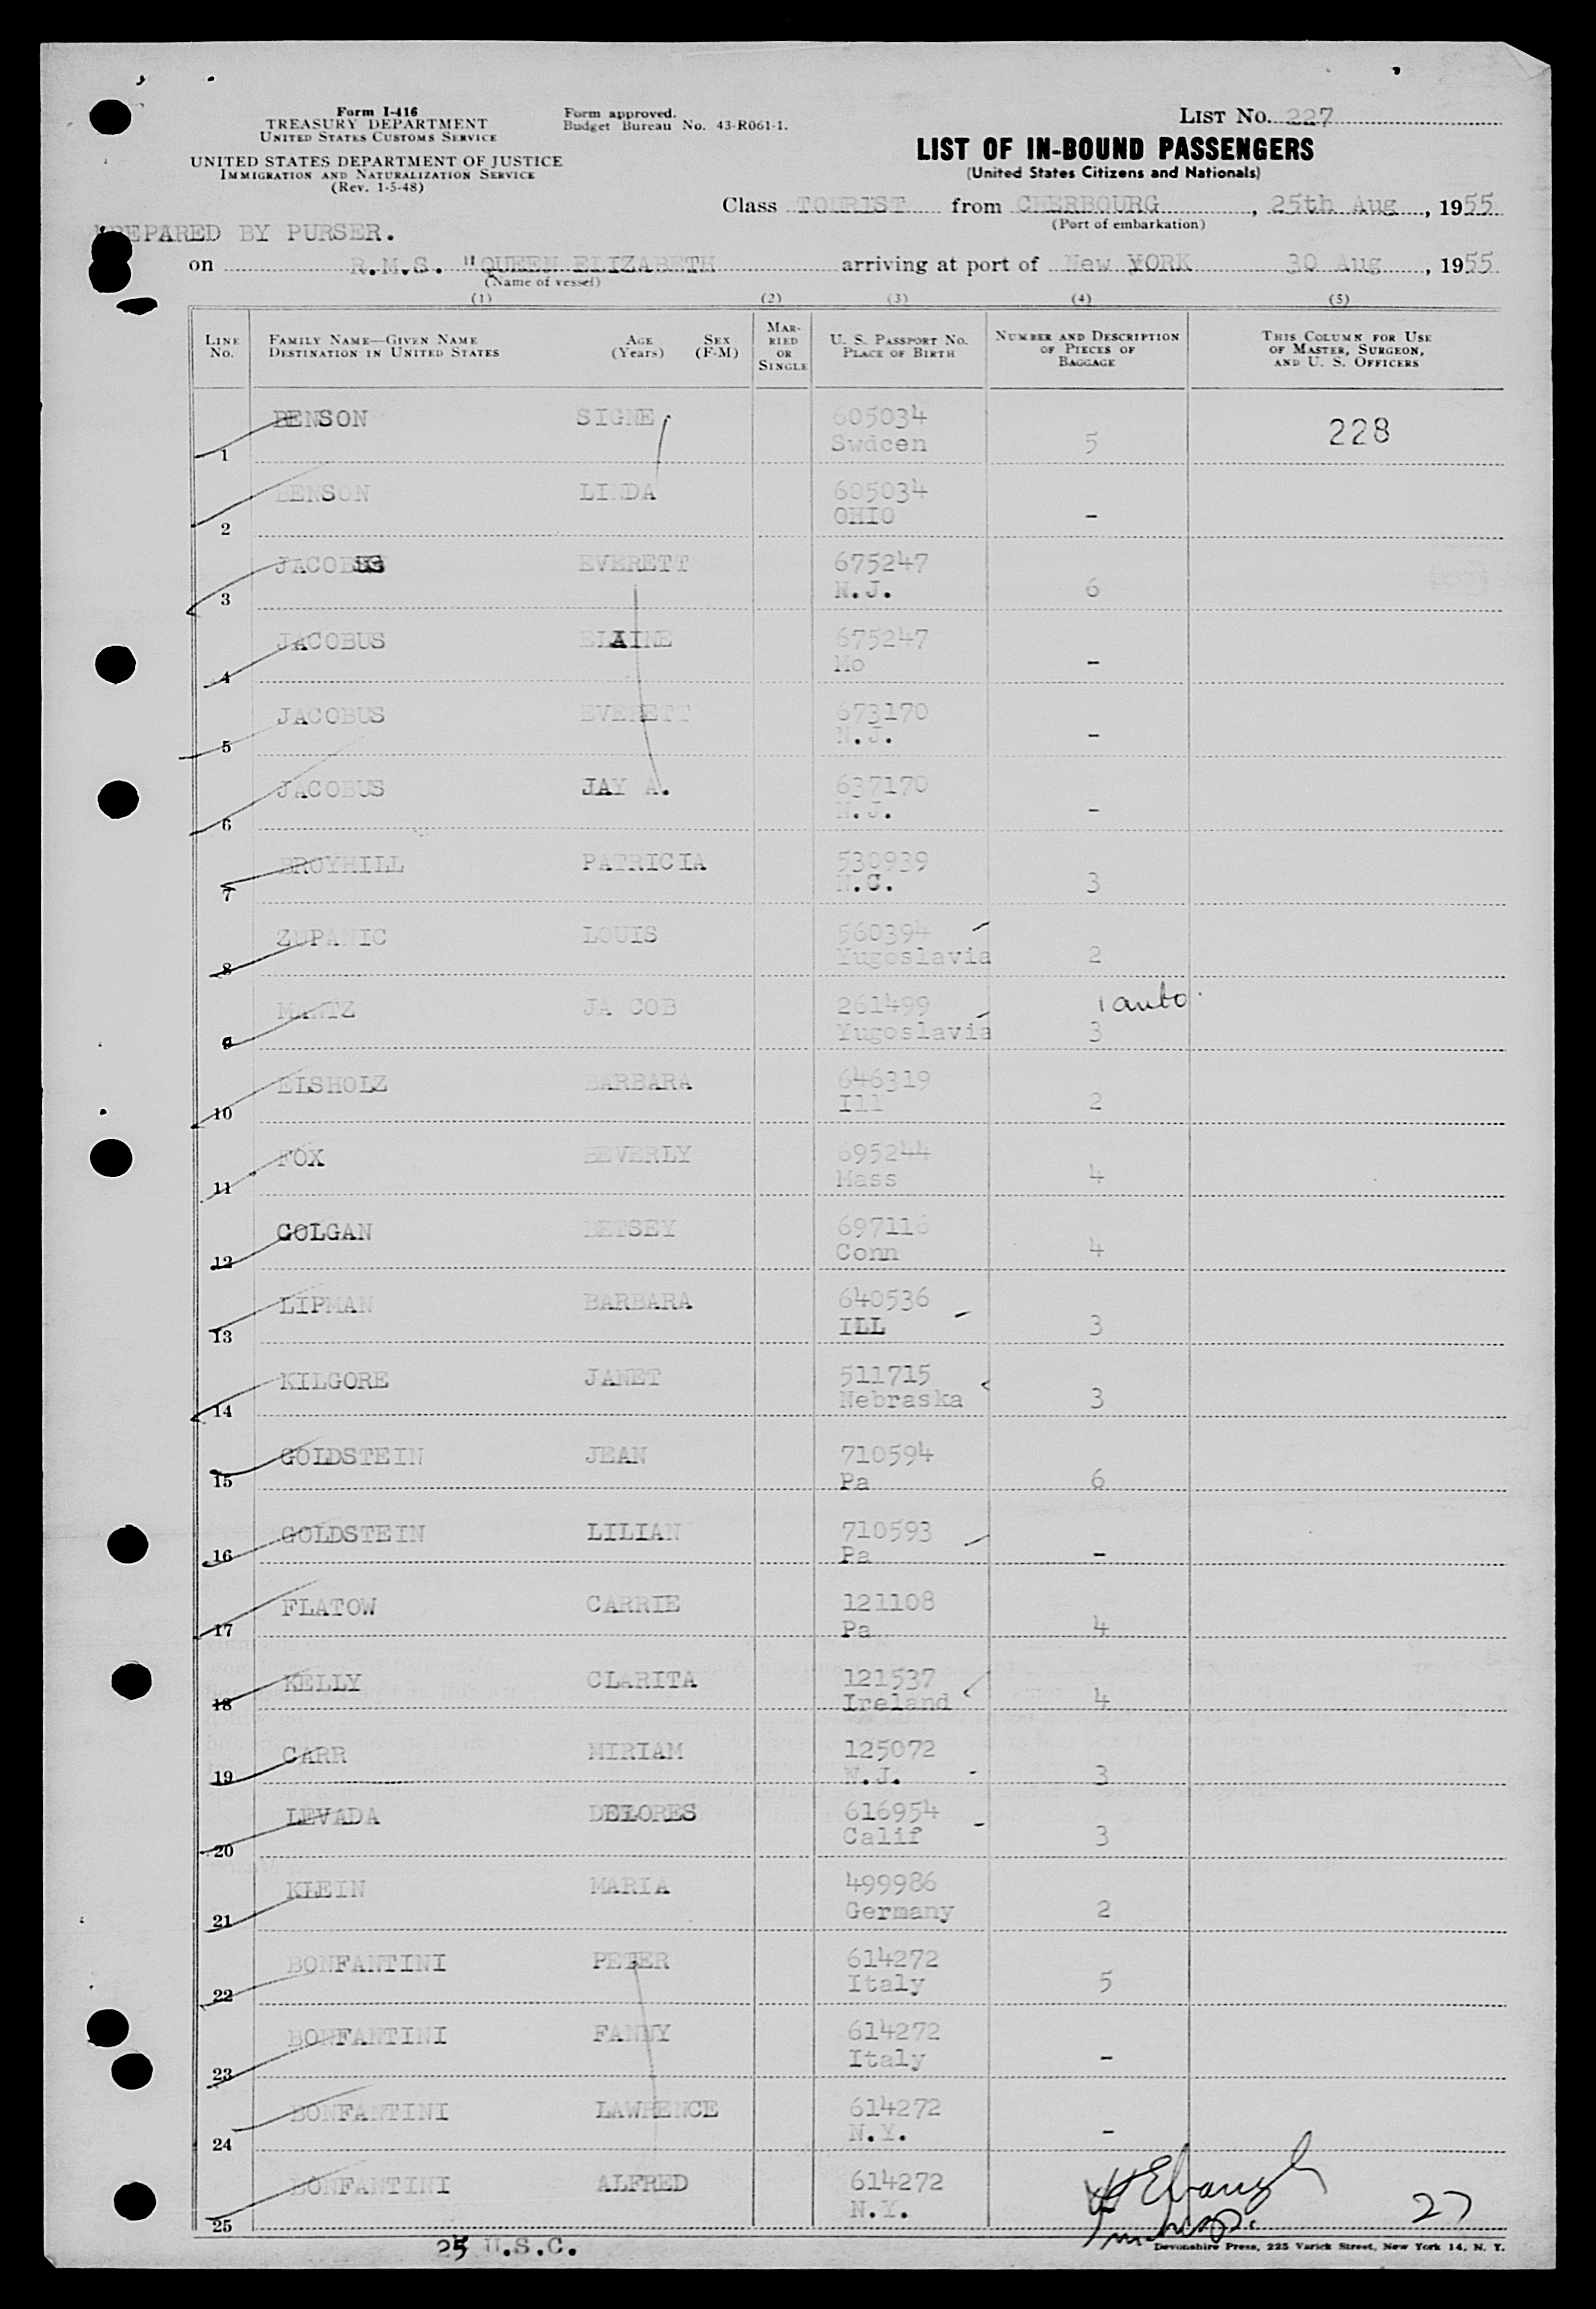 Form I-416
TREASURY DEPARTMENT
UNITED STATES CUSTOMS SERVICE
UNITED STATES DEPARTMENT OF JUSTICE
IMMIGRATION AND NATURALIZATION SERVICE
(Rev. 1-5-48)
Form approved.
Budget Bureau No. 43-R061-1.
LIST NO. 227
LIST OF IN-BOUND PASSENGERS
(United States Citizens and Nationals)
Class TOURIST from CHERBOURG, 25th Aug, 1955
(Port of embarkation)
PREPARED BY PURSER.
on R.M.S. "QUEEN ELIZABETH arriving at port of New YORK 30 Aug, 1955
(Name of vessel)
(1) (2) (3) (4) (5)
LINE NO. FAMILY NAME—GIVEN NAME DESTINATION IN UNITED STATES AGE (Years) SEX (F-M) MARRIED OR SINGLE U. S. PASSPORT NO. PLACE OF BIRTH NUMBER AND DESCRIPTION OF PIECES OF BAGGAGE THIS COLUMN FOR USE OF MASTER, SURGEON, AND U. S. OFFICERS
BENSON SIGNE 605034 228
1 Swdcen 5
BENSON LINDA 605034
2 OHIO -
JACOBUS EVERETT 675247
3 N.J. 6
JACOBUS ELAINE 675247
4 Mo -
JACOBUS EVERETT 673170
5 N.J. -
JACOBUS JAY A. 637170
6 N.J. -
BROYHILL PATRICIA 530939
7 N.C. 3
ZUPANIC LOUIS 560394
8 Yugoslavia 2
MANTZ JA COB 261499 1 auto
9 Yugoslavia 3
ELSHOLZ BARBARA 646319
10 Ill 2
FOX BEVERLY 695244
11 Mass 4
COLGAN BETSEY 697116
12 Conn 4
LIPMAN BARBARA 640536
13 ILL 3
KILGORE JANET 511715
14 Nebraska 3
GOLDSTEIN JEAN 710594
15 Pa 6
GOLDSTEIN LILIAN 710593
16 Pa -
FLATOW CARRIE 121108
17 Pa 4
KELLY CLARITA 121537
18 Ireland 4
CARR MIRIAM 125072
19 N.J. 3
LEVADA DELORES 616954
20 Calif 3
KLEIN MARIA 499986
21 Germany 2
BONFANTINI PETER 614272
22 Italy 5
BONFANTINI FANNY 614272
23 Italy -
BONFANTINI LAWRENCE 614272
24 N.Y. -
BONFANTINI ALFRED 614272
25 N.Y. 27
25 U.S.C.
Devonshire Press, 225 Varick Street, New York 14, N. Y.